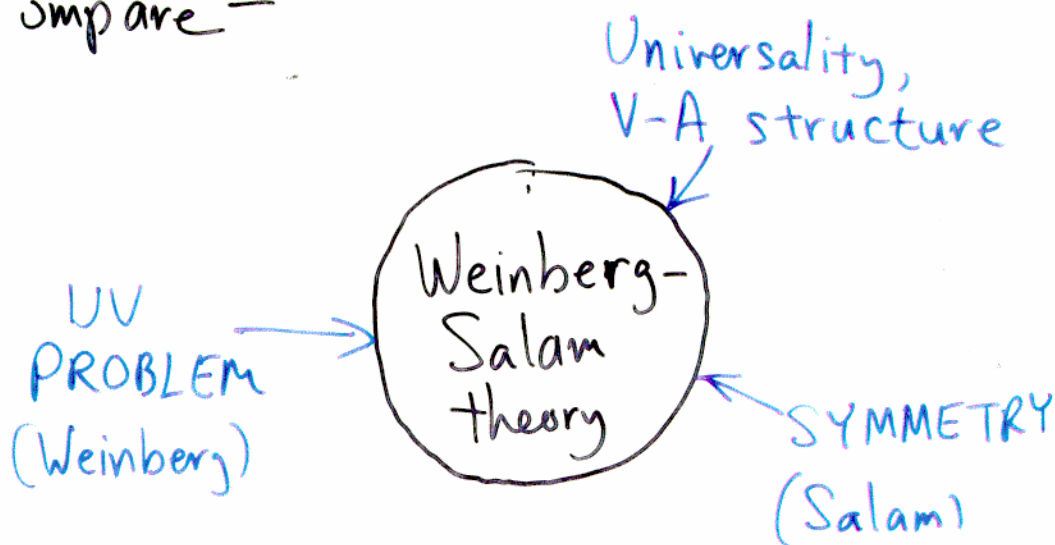 ompare -
Universality,
V-A structure
Weinberg-
Salam
theory
UV
PROBLEM
(Weinberg)
SYMMETRY
(Salam)